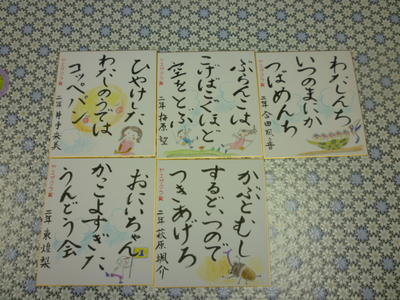 ひやけした
わたしのうでは
コッペパン
ぶらんこは
こげばこぐほど
空をとぶ
二年 梅原 望
わたしんち
いつのまにか
つばめんち
おにいちゃん
かっこよすぎた
うんどう会
かぶとむし
するどいつので
つきあげろ
二年 萩原 颯介